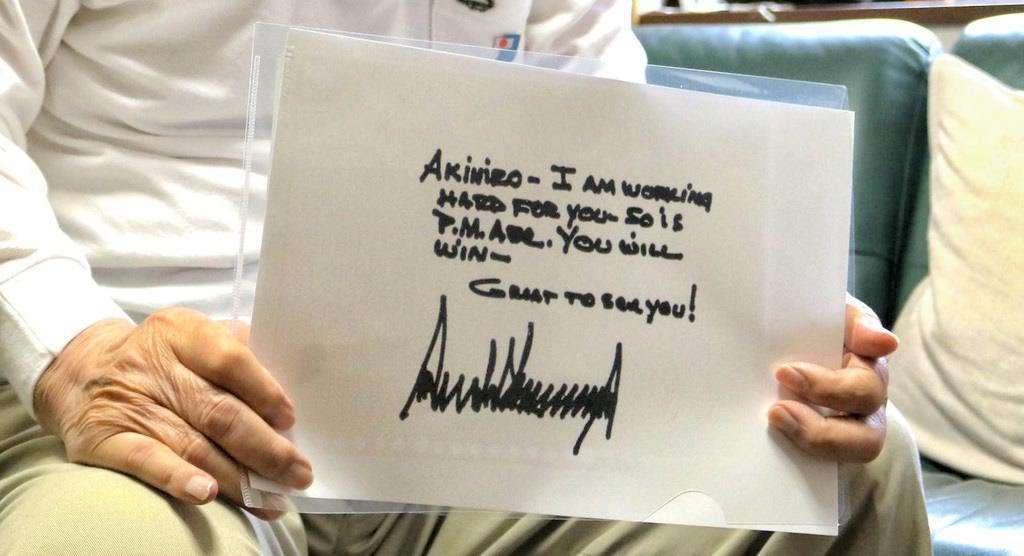 AKIHIRO- I AM WORKING
HARD FOR YOU- SO IS
P.M. ABE. YOU WILL
WIN-
GREAT TO SEE YOU!